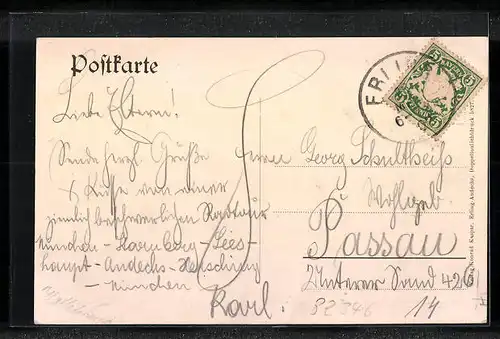 Postkarte
Liebe Eltern!
Sende herzl. Grüße
& Küsse von einer
ziemlich beschwerlichen Radtour
München - Starnberg - Sees-
haupt - Andechs - Herrsching
- München
Karl.
Herrn Georg Schultheiß
Wohlgeb.
Passau
Unterer Sand 426
82346
14
FRI
6
BAYERN
5
Verlag Konrad Kappur, Erling-Andechs, Doppeltonlichtdruck